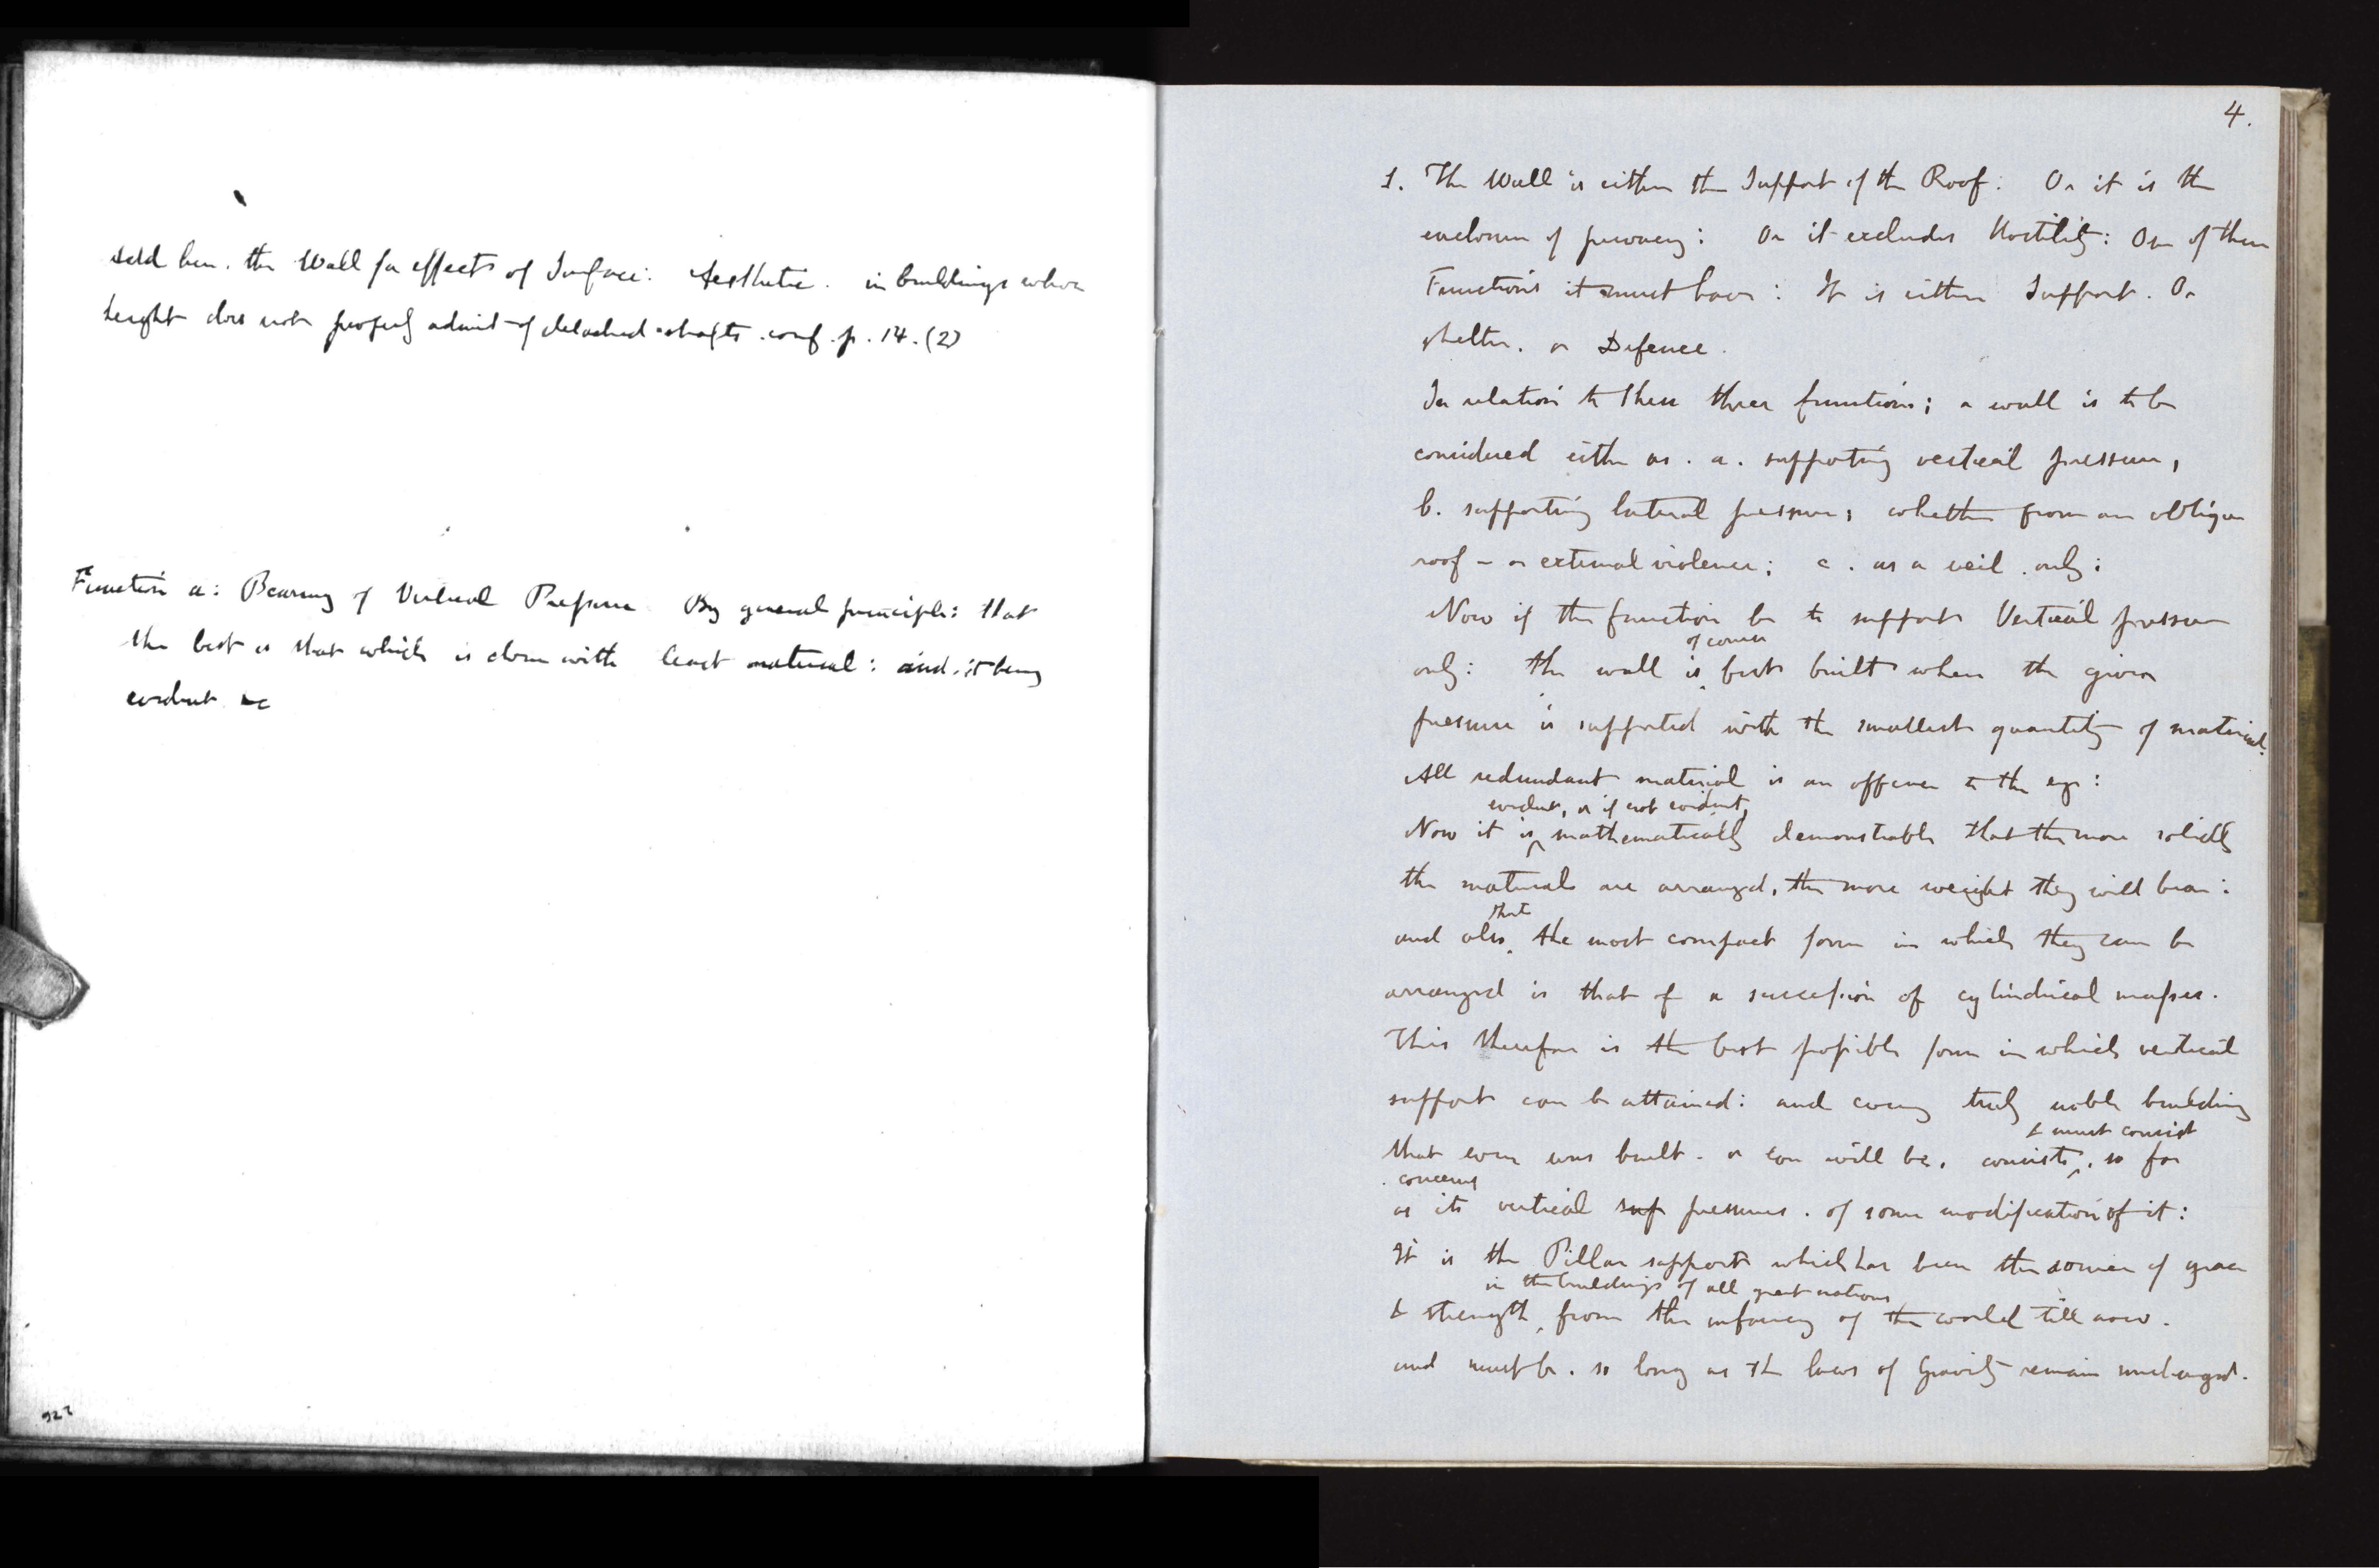 add here. the Wall for effects of Surface: Aesthetic. in buildings whose
height does not properly admit of detached shafts. conf. p. 14. (2)
Function a: Bearing of Vertical Pressure By general principle: that
the best is that which is done with least material: and it being
evident &c
4.
1. The Wall is either the Support of the Roof: Or it is the
enclosure of privacy: Or it excludes Hostility: One of these
Functions it must have: It is either Support. Or
shelter. or Defence.
In relation to these three functions; a wall is to be
considered either as. a. supporting vertical pressure,
b. supporting lateral pressure; whether from an oblique
roof - or external violence; c. as a veil. only:
Now if the function be to support Vertical pressure
of course
only: the wall is best built when the given
pressure is supported with the smallest quantity of material.
All redundant material is an offence to the eye:
evident, or if not evident,
Now it is mathematically demonstrable that the more solidly
the materials are arranged, the more weight they will bear:
that
and also, the most compact form in which they can be
arranged is that of a succession of cylindrical masses.
This therefore is the best possible form in which vertical
support can be attained: and every truly noble building
& must consist
that ever was built. or ever will be, consists, so far
concerns
as its vertical sup pressures. of some modification of it:
It is the Pillar support which has been the source of grace
in the buildings of all great nations
& strength, from the infancy of the world till now.
and must be. so long as the laws of Gravity remain unchanged.